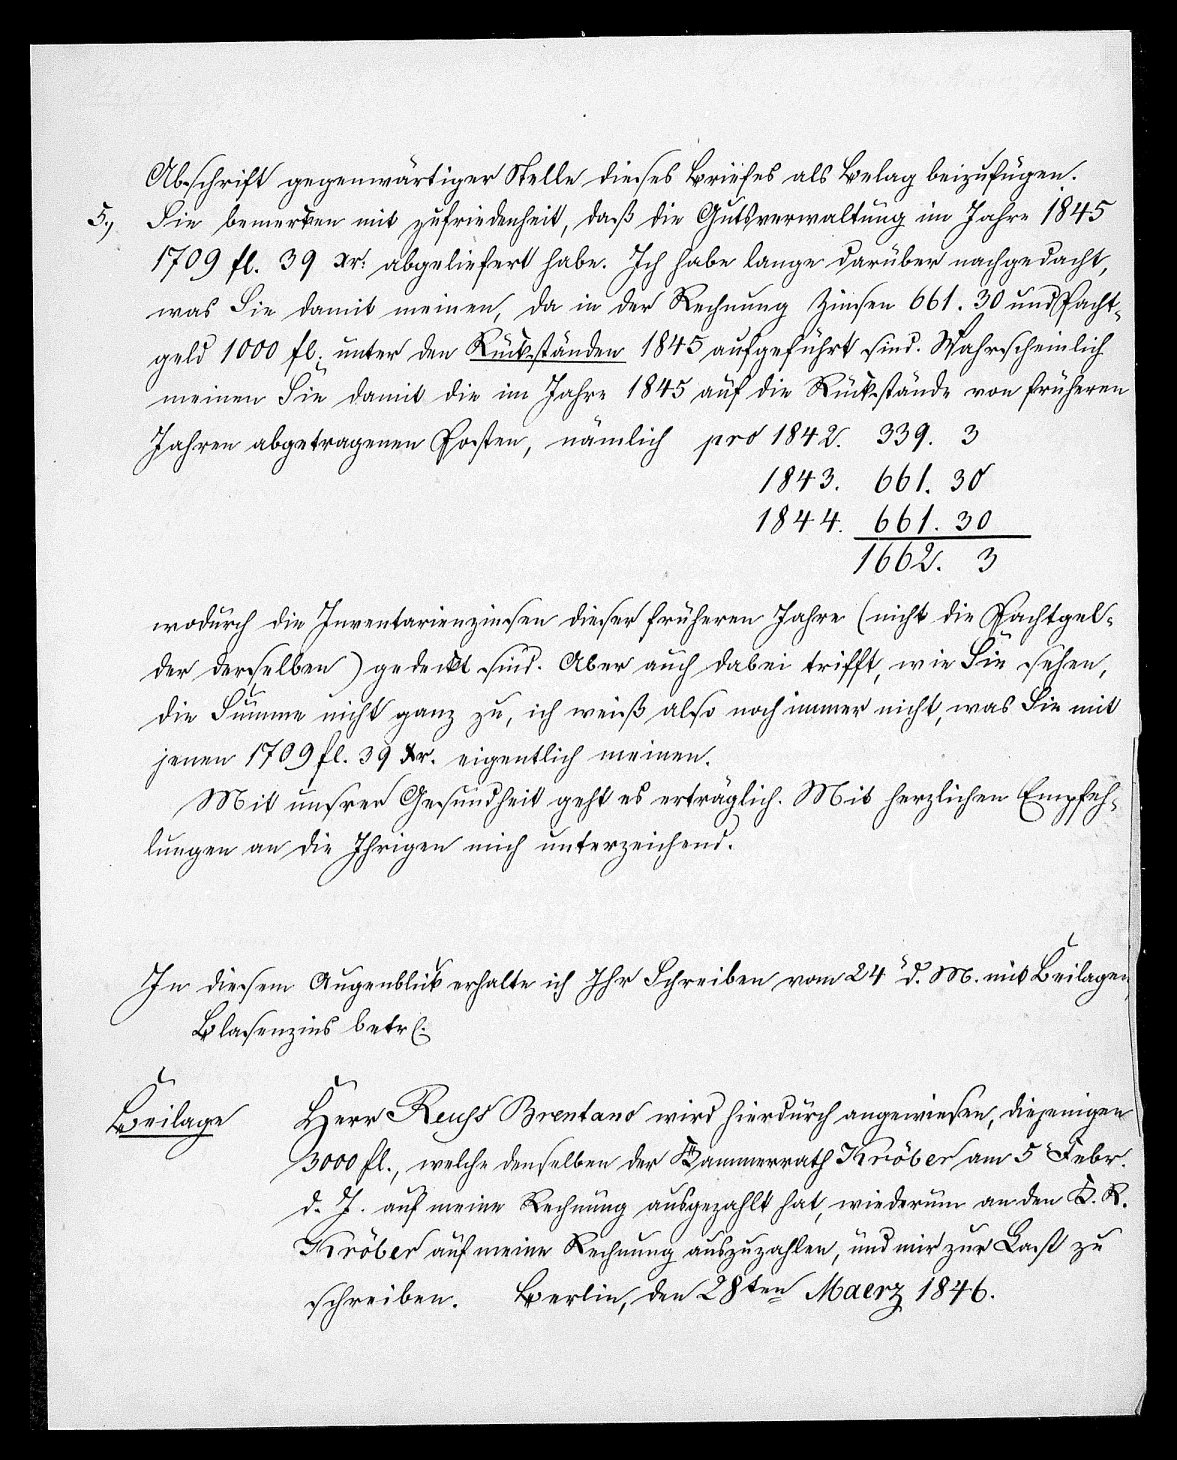 Abschrift gegenwärtiger Stelle dieses Briefes als Belag beizufügen.
5., Sie bemerken mit Zufriedenheit, daß die Gutsverwaltung im Jahre 1845
1709 fl. 39 xr. abgeliefert habe. Ich habe lange darüber nachgedacht,
was Sie damit meinen, da in der Rechnung Zinsen 661. 30 und Pacht-
geld 1000 fl. unter den Rückständen 1845 aufgeführt sind. Wahrscheinlich
meinen Sie damit die im Jahre 1845 auf die Rückstände von früheren
Jahren abgetragenen Posten, nämlich pro 1842. 339. 3
1843. 661. 30
1844. 661. 30
1662. 3
wodurch die Inventarienzinsen dieser früheren Jahre (nicht die Pachtgel-
der derselben) gedeckt sind. Aber auch dabei trifft, wie Sie sehen,
die Summe nicht ganz zu, ich weiß also noch immer nicht, was Sie mit
jenen 1709 fl. 39 xr. eigentlich meinen.
Mit unsrer Gesundheit geht es erträglich. Mit herzlichen Empfeh-
lungen an die Ihrigen mich unterzeichend.
In diesem Augenblick erhalte ich Ihr Schreiben vom 24 d. M. mit Beilagen,
Blasenzins betr.
Beilage Herr Reuss Brentano wird hierdurch angewiesen, diejenigen
3000 fl., welche denselben der Kammerrath Kröber am 5 Febr.
d. J. auf meine Rechnung ausgezahlt hat, wiederum an den K. R.
Kröber auf meine Rechnung auszuzahlen, und mir zur Last zu
schreiben. Berlin, den 28ten Maerz 1846.